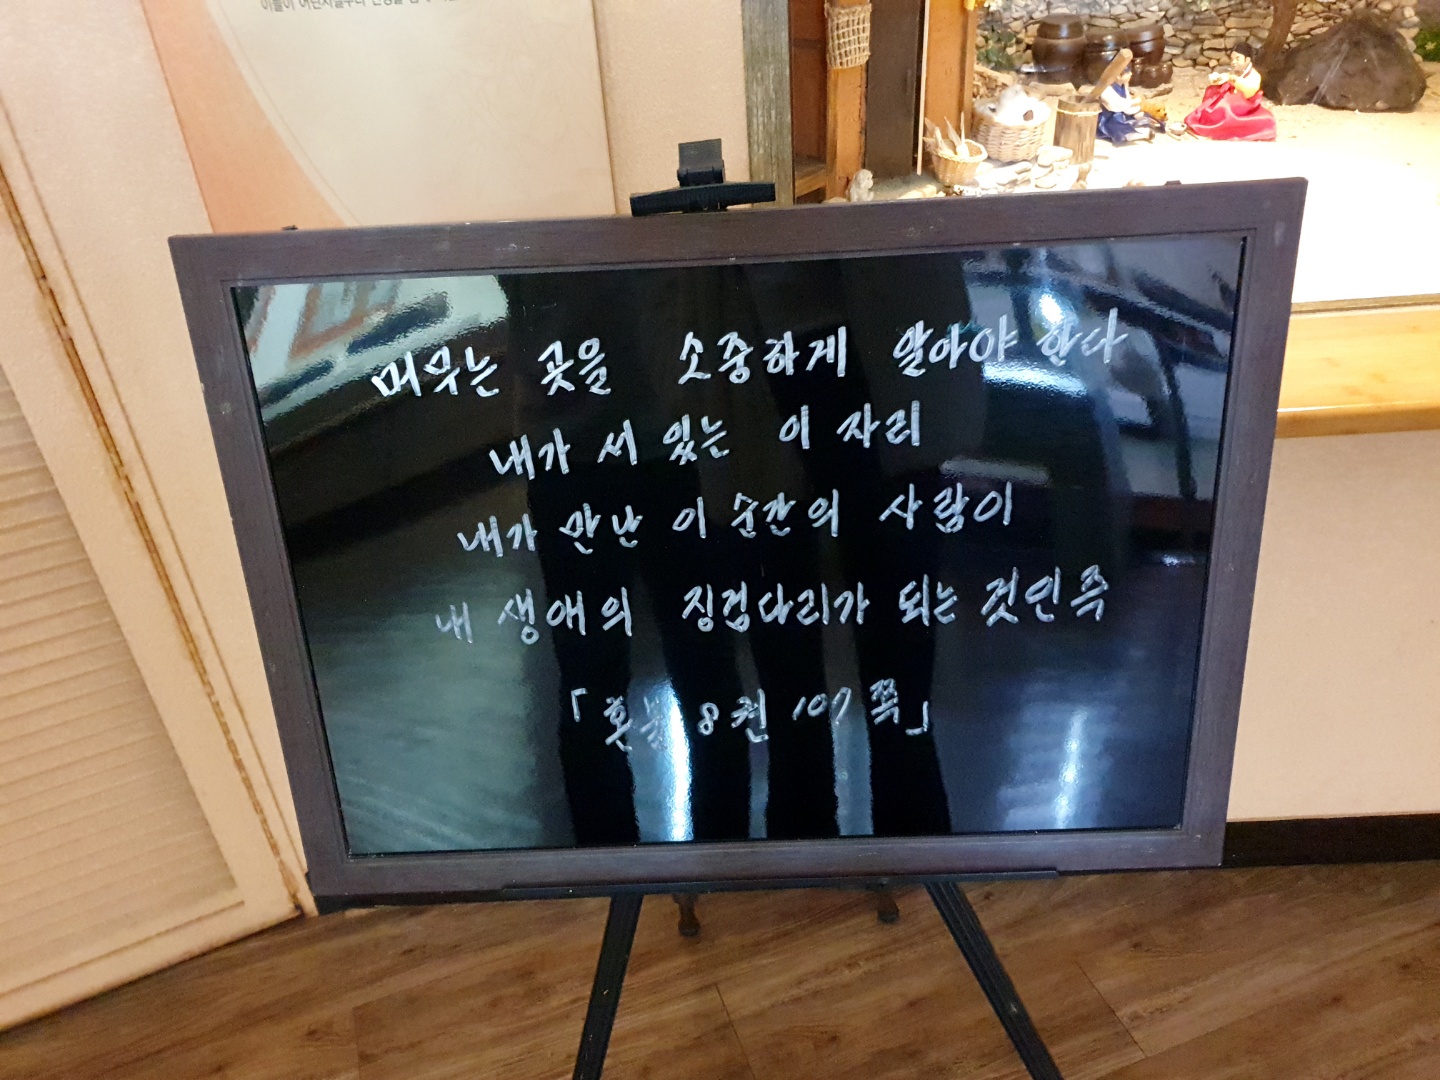 머무는 곳을 소중하게 알아야 한다
내가 서 있는 이 자리
내가 만난 이 순간의 사람이
내 생애의 징검다리가 되는 것인 즉
「혼불 8권 107쪽」